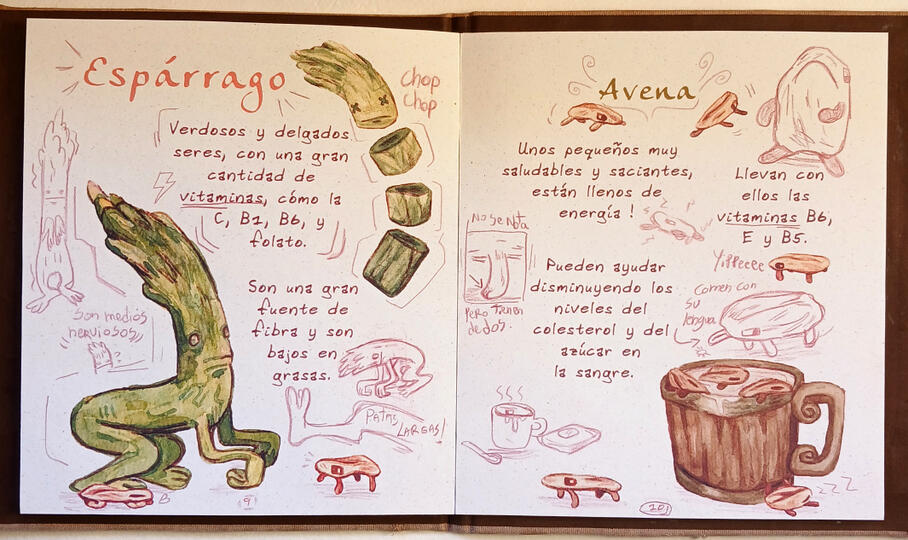 Espárrago
Chop
Chop
Verdosos y delgados
seres, con una gran
cantidad de
vitaminas, cómo la
C, B1, B6, y
folato.
Son una gran
fuente de
fibra y son
bajos en
grasas.
Son medios
nerviosos
?
PATAS
LARGAS!
9
Avena
Unos pequeños muy
saludables y saciantes,
están llenos de
energía !
Llevan con
ellos las
vitaminas B6,
E y B5.
No se Nota
Pero tienen
dedos.
Pueden ayudar
disminuyendo los
niveles del
colesterol y del
azúcar en
la sangre.
Yiffeeee
Comen con
su
lengua
zzz
10